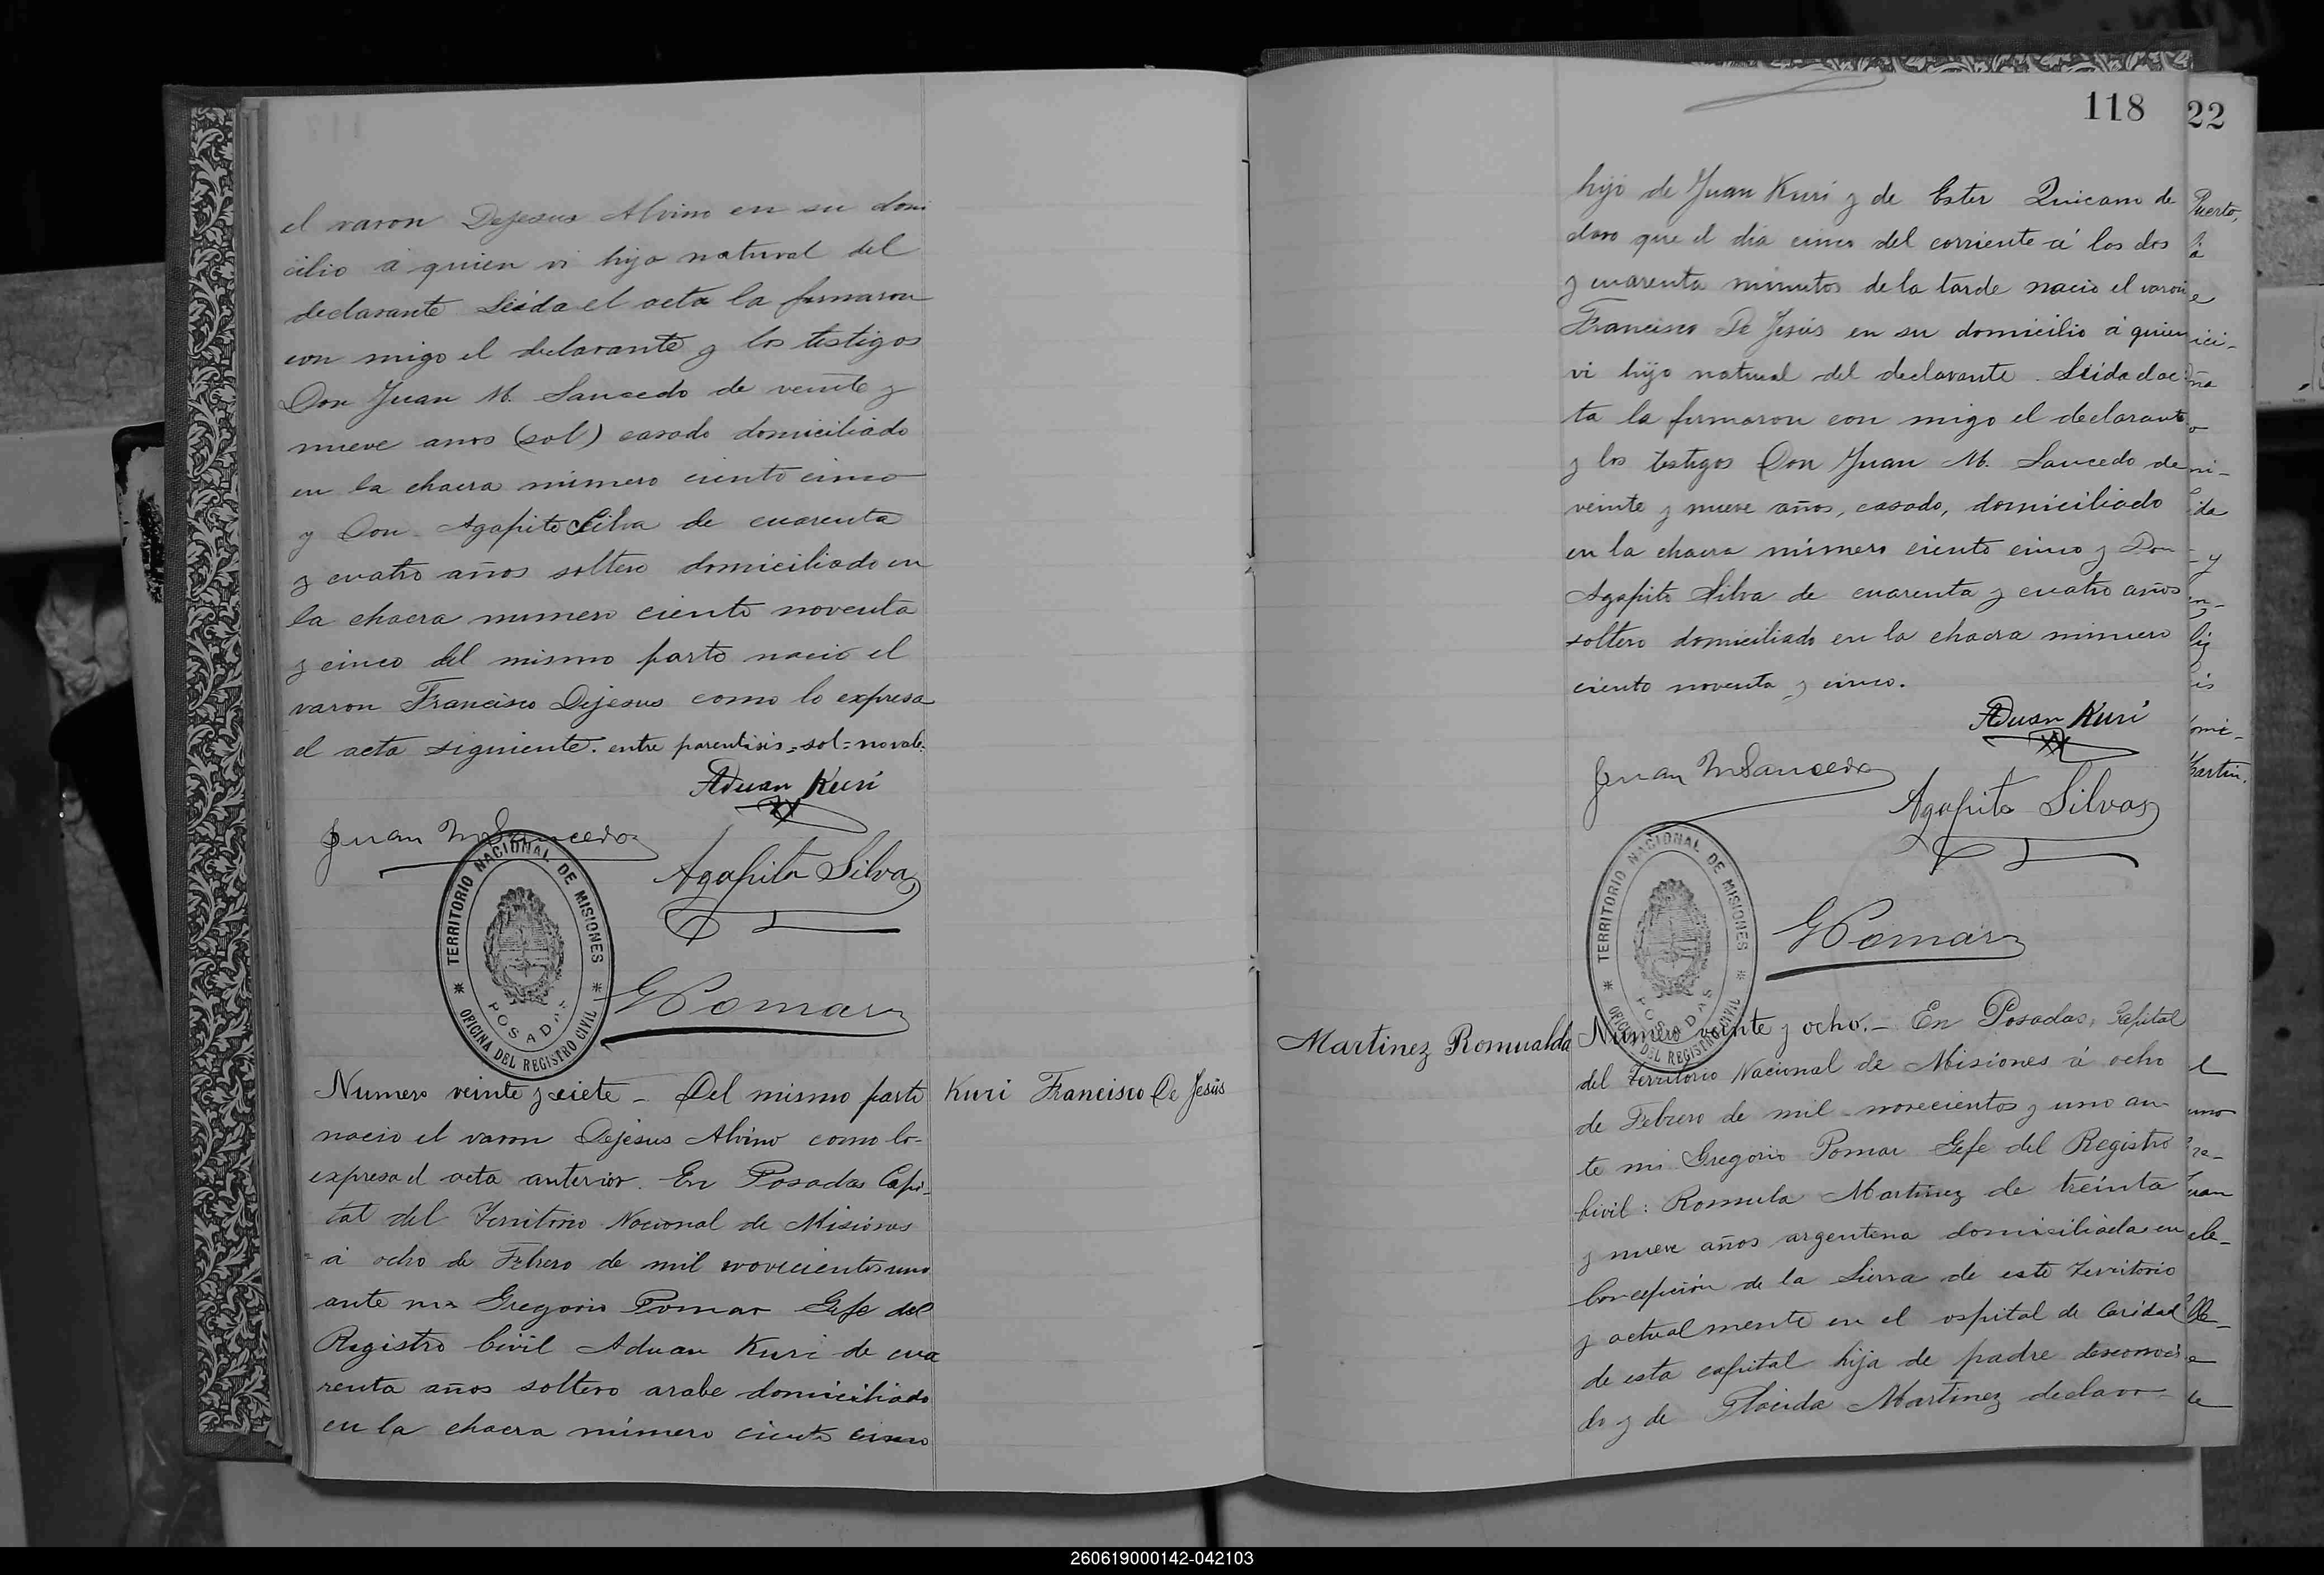 el varon Dejesus Alvino en su domi
cilio á quien vi hijo natural del
declarante Leida el acta la firmaron
con migo el declarante y los testigos
Don Juan M. Saucedo de veinte y
nueve anos (sol) casado domiciliado
en la chacra número ciento cinco
y Don Agapito Silva de cuarenta
y cuatro años soltero domiciliado en
la chacra numero ciento noventa
y cinco del mismo parto nació el
varon Francisco Dejesus como lo expresa
el acta siguiente. entre parentisis = sol = no vale.
Aduan Kuri
Juan M Saucedo
Agapito Silva
TERRITORIO NACIONAL DE MISIONES
POSADAS
OFICINA DEL REGISTRO CIVIL
G Pomar
Numero veinte y siete _ Del mismo parto
nacio el varon Dejesus Alvino como lo
expresa el acta anterior. En Posadas Capi-
tal del Territorio Nacional de Misiones
á ocho de Febrero de mil novecientos uno
ante mi Gregorio Pomar Gefe del
Registro Civil Aduan Kuri de cua
renta años soltero arabe domiciliado
en la chacra número ciento cinco
Kuri Francisco De Jesús
118
hijo de Juan Kuri y de Ester de
claro que el dia cinco del corriente á las dos
y cuarenta minutos de la tarde nacio el varon
Francisco De Jesús en su domicilio á quien
vi hijo natural del declarante. Leida el ac
ta la firmaron con migo el declarante
y los testigos Don Juan M. Saucedo de
veinte y nueve años, casado, domiciliado
en la chacra número ciento cinco y Don
Agapito Silva de cuarenta y cuatro años
soltero domiciliado en la chacra número
ciento noventa y cinco.
Aduan Kuri
Juan M Saucedo
Agapito Silva
TERRITORIO NACIONAL DE MISIONES
POSADAS
OFICINA DEL REGISTRO CIVIL
G Pomar
Martinez Romualda
Numero veinte y ocho. _ En Posadas, Capital
del Territorio Nacional de Misiones á ocho
de Febrero de mil novecientos y uno an
te mi Gregorio Pomar Gefe del Registro
Civil: Romula Martinez de treinta
y nueve años argentina domiciliada en
Concepción de la Sierra de este Territorio
y actualmente en el ospital de Caridad
de esta capital hija de padre desconoci
do y de Placida Martinez declaro
22
Puerto,
260619000142-042103